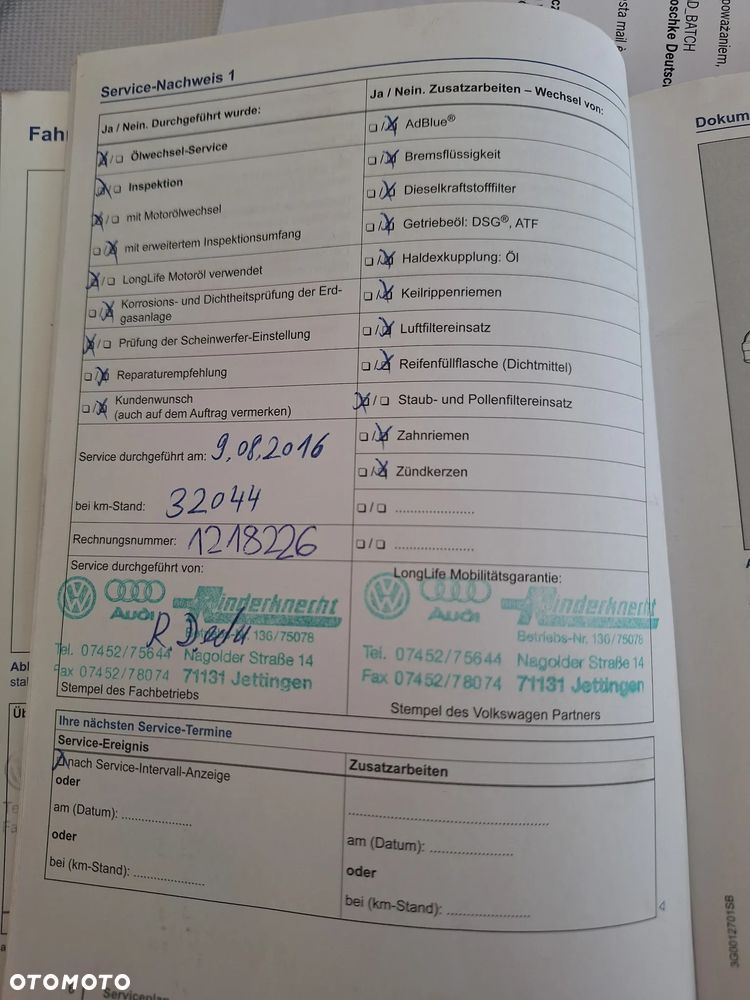 Service-Nachweis 1
Ja / Nein. Durchgeführt wurde:
Ölwechsel-Service
Inspektion
mit Motorölwechsel
mit erweitertem Inspektionsumfang
LongLife Motoröl verwendet
Korrosions- und Dichtheitsprüfung der Erd-
gasanlage
Prüfung der Scheinwerfer-Einstellung
Reparaturempfehlung
Kundenwunsch
(auch auf dem Auftrag vermerken)
Service durchgeführt am: 9.08.2016
bei km-Stand: 32044
Rechnungsnummer: 1218226
Ja / Nein. Zusatzarbeiten – Wechsel von:
AdBlue®
Bremsflüssigkeit
Dieselkraftstofffilter
Getriebeöl: DSG®, ATF
Haldexkupplung: Öl
Keilrippenriemen
Luftfiltereinsatz
Reifenfüllflasche (Dichtmittel)
Staub- und Pollenfiltereinsatz
Zahnriemen
Zündkerzen
Service durchgeführt von:
Audi Rinderknecht
Betriebs-Nr. 136/75078
Tel. 07452/75644 Nagolder Straße 14
Fax 07452/78074 71131 Jettingen
Stempel des Fachbetriebs
LongLife Mobilitätsgarantie:
Audi Rinderknecht
Betriebs-Nr. 136/75078
Tel. 07452/75644 Nagolder Straße 14
Fax 07452/78074 71131 Jettingen
Stempel des Volkswagen Partners
Ihre nächsten Service-Termine
Service-Ereignis
nach Service-Intervall-Anzeige
oder
am (Datum):
oder
bei (km-Stand):
Zusatzarbeiten
am (Datum):
oder
bei (km-Stand):
4
Dokum
3G0012701SB
poważaniem,
D_BATCH
oschke Deutsc
sta mail
Fah
Abl
stal
Serviceplan
OTOMOTO